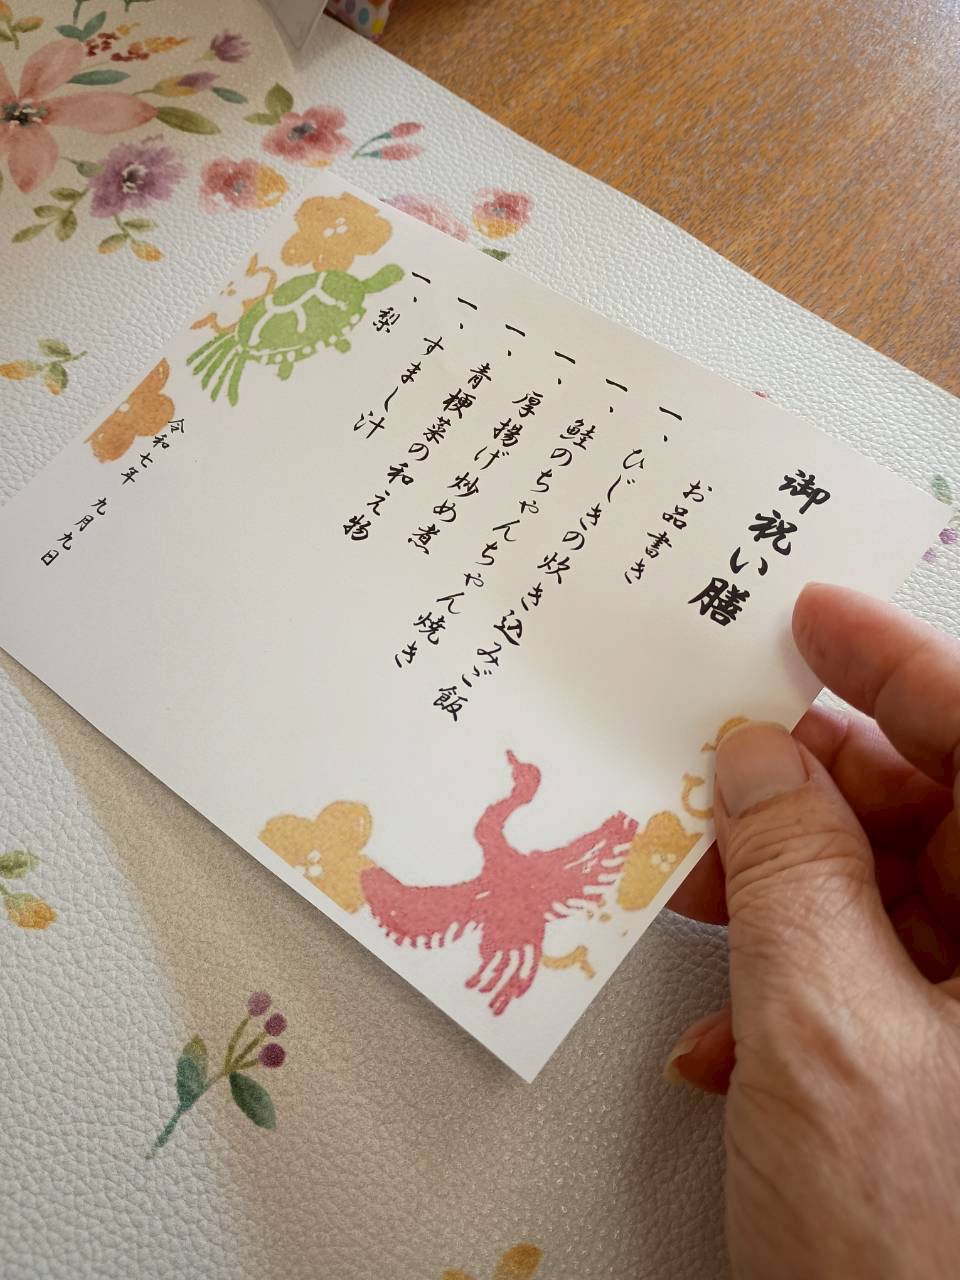 御祝い膳
お品書き
一、ひじきの炊き込みご飯
一、鮭のちゃんちゃん焼き
一、厚揚げ炒め煮
一、青梗菜の和え物
一、すまし汁
一、梨
令和七年 九月九日